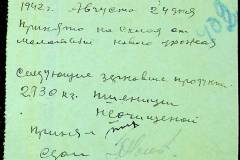 1942 г. Августа 24 дня
Принято на склад от
молотьбы нового урожая
следующие зерновые продукт.
2730 кг. пшеницы
неочищеной
Принял
Сдал